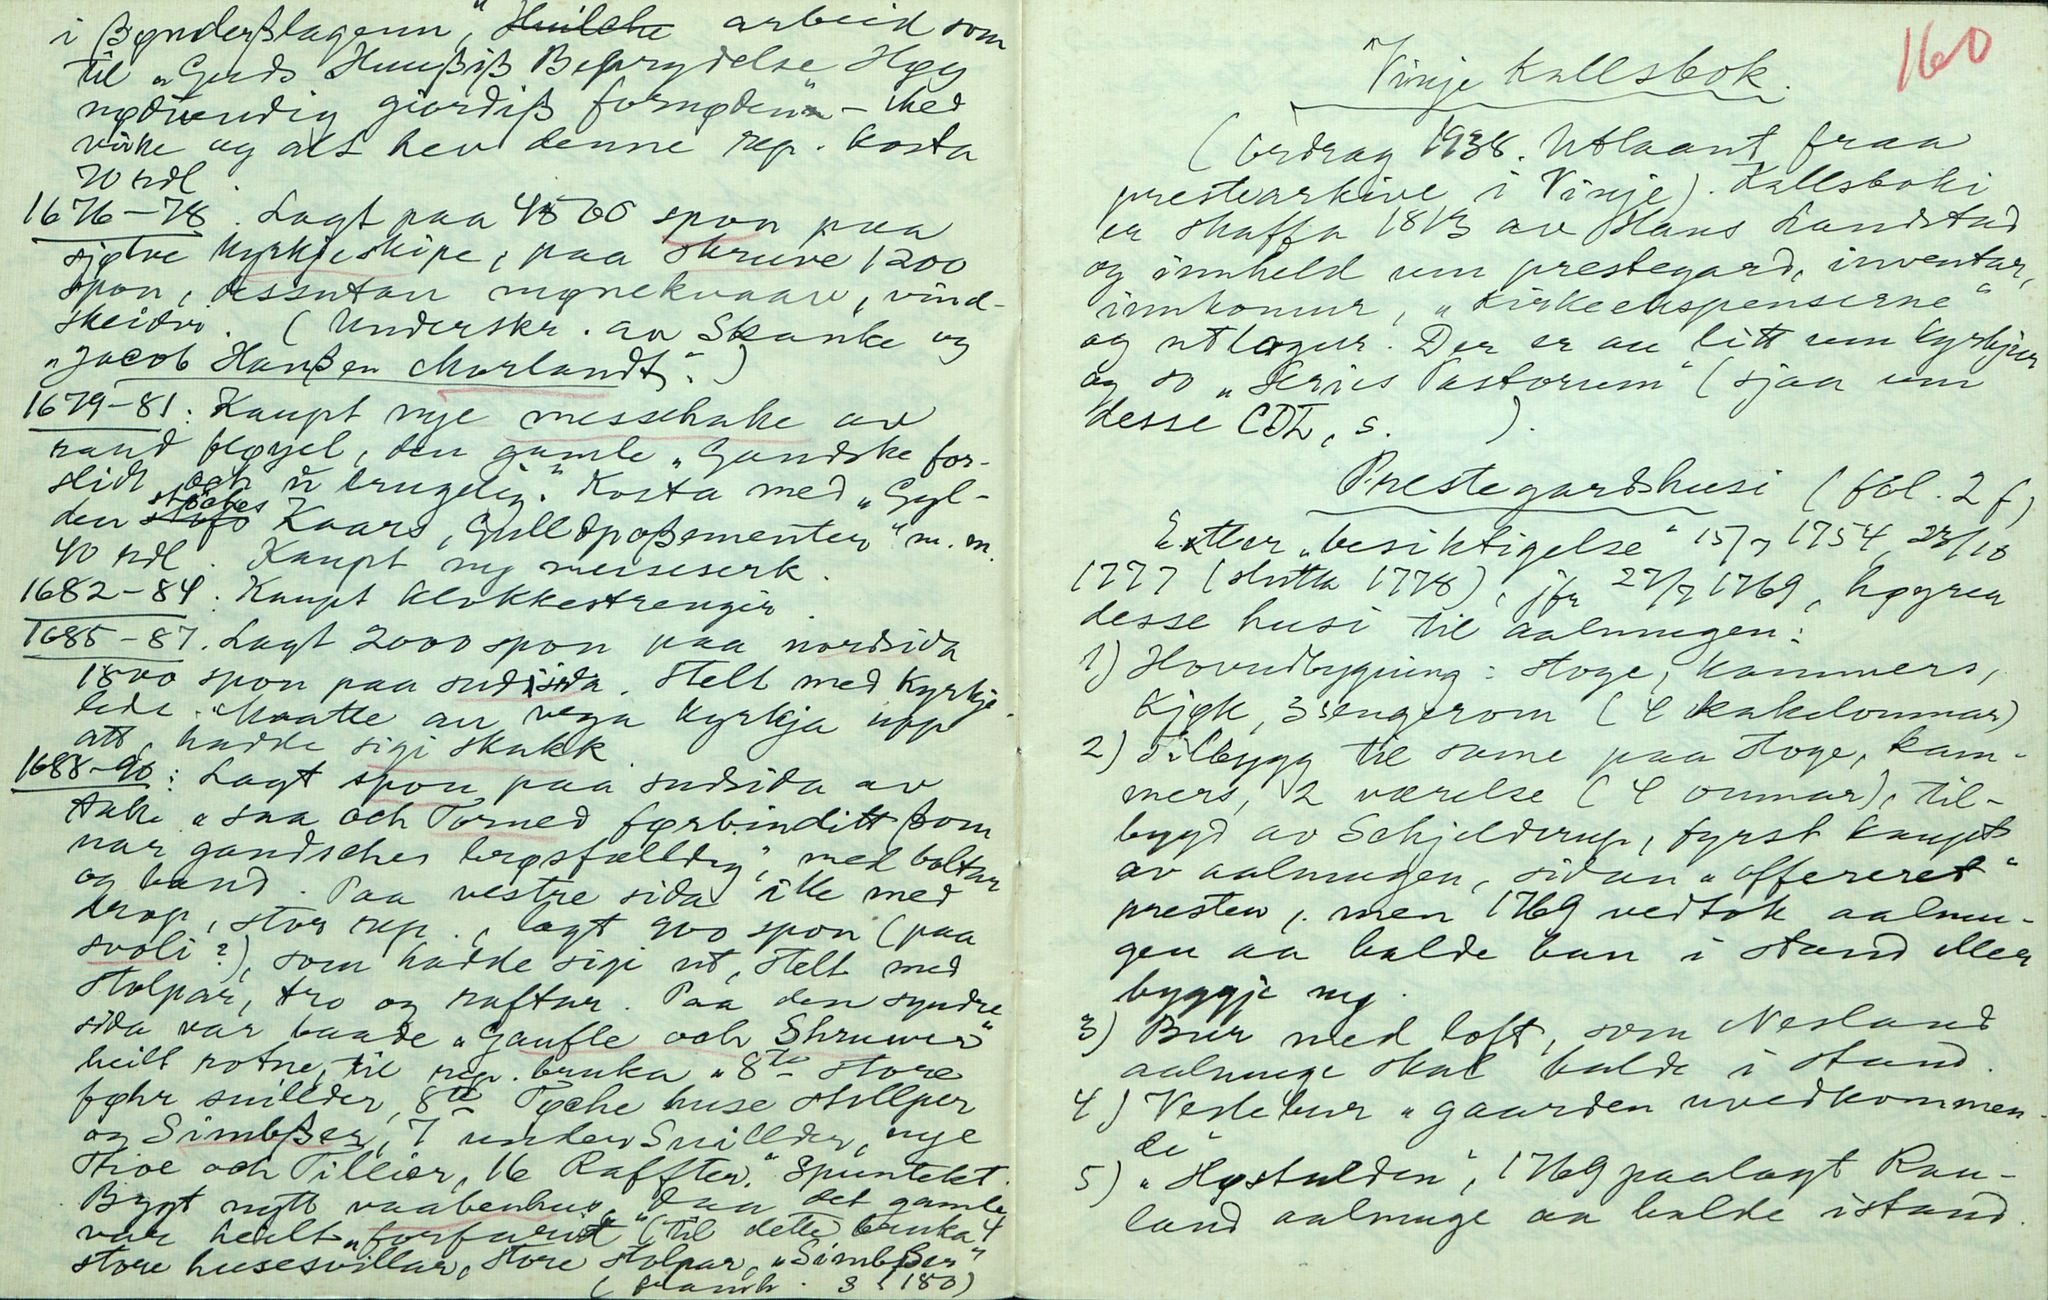 i Bønderßlagenn", Huilche arbeid som
til "Guds Huußiß Beprydelse Høy
nødvendig giordiß fornøden" – Med
virke og alt hev denne rep. kosta
70 rdl.
1676–78. Lagt paa 4500 spon paa
sjølve kyrkjeskipe, paa skruve 1200
spon, dessutan mønekvaarv, vind-
skeidar. (Underskr. av Skanke og
"Jacob Hanßen Morlandt".)
1679–81: Kaupt nye messehake av
raud fløyel, den gamle "Gandske for-
slidt och u brugelig." Kosta med "Gyl-
den støches Kaars, Gulldpoßementer" m. m.
40 rdl. Kaupt ny messeserk.
1682–84: Kaupt klokkestrengir.
1685–87. Lagt 2000 spon paa nordsida
1800 spon paa sudsida. Stelt med kyrkje-
lede. Maatte au vega kyrkja upp
att, hadde sigi skakk
1688–90: Lagt spon paa sudsida av
take "saa och Torned forbinditt ßom
var gandsches brøsfælldig", med boltar
og band. Paa vestre sida ille med
drop, stor rep., lagt 900 spon (paa
svoli?), som hadde sigi ut, stelt med
stolpar, tro og raftar. Paa den syndre
sida var baade "Gaufle och Skruwer"
heilt rotne, til rep. bruka "8te store
føhr suillder, 8te Tøche huse stillper
og Simbßer, 7 under Suillder, nye
Stioe och Tillier, 16 Raffter." Spuntekt.
Bygt nytt vaabenhus, daa det gamle
var heilt "forfarit" (til dette bruka "4
store husesvillar, store stolpar, "Simbßer"
( s. 180)
160
Vinje Kallsbok.
(Ordrag 1938. Utlaant fraa
prestearkive i Vinje). Kallsboki
er skaffa 1813 av Hans Landstad
og innheld um prestegard, inventar,
innkomur, "Kirkeexpenserne"
og utlogur. Der er au litt um kyrkjur
og so "Series Pastorum" (sjaa um
desse CDL, s. ).
Prestegardshusi (fol. 2 f)
Etter "besiktigelse" 15/7 1754, 23/10
1777 (slutta 1778), jfr 27/7 1769, høyrea
desse husi til aalmugen:
1) Hovudbygning: Stoge, kammers,
kjøk, 3 sengerom (4 kakelomnar)
2) Tilbygg til same paa stoge, kam-
mers, 2 værelse (4 omnar), til-
bygd av Schjelderup, fyrst kaupt
av aalmugen, sidan "offereret"
presten, men 1769 vedtok aalmu-
gen aa halde han i stand eller
byggje ny.
3) Bur med loft, som Nesland
aalmuge skal halde i stand.
4) Vesle bur "gaarden uvedkommen-
de"
5) "Høstalden", 1769 paalagt Rau-
land aalmuge aa halde istand.